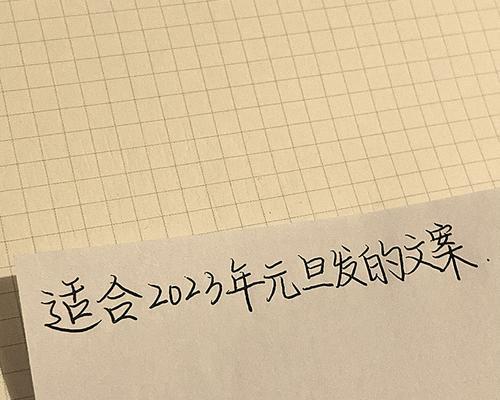 适合2023年元旦发的文案.